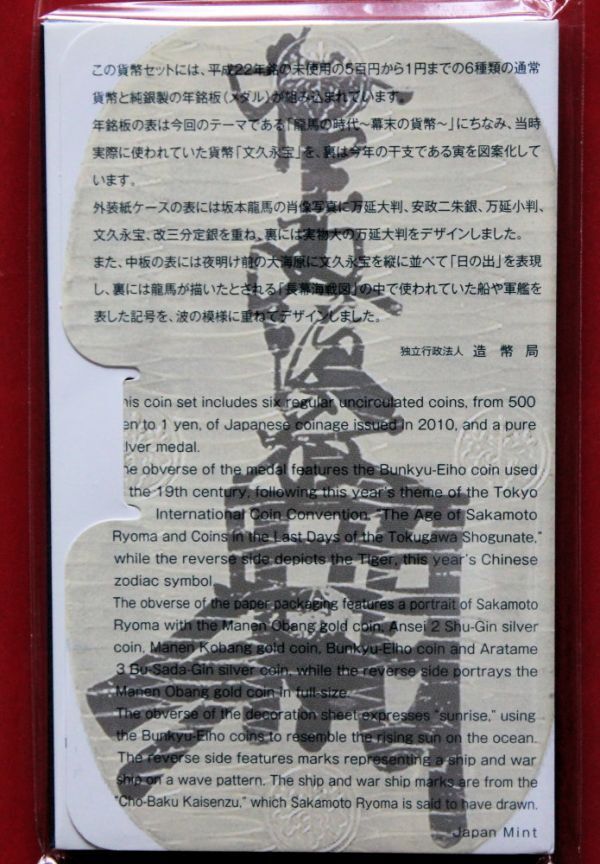 この貨幣セットには、平成22年銘の未使用の5百円から1円までの6種類の通常
貨幣と純銀製の年銘板（メダル）が組み込まれています。
年銘板の表は今回のテーマである「龍馬の時代～幕末の貨幣～」にちなみ、当時
実際に使われていた貨幣「文久永宝」を、裏は今年の干支である寅を図案化して
います。
外装紙ケースの表には坂本龍馬の肖像写真に万延大判、安政二朱銀、万延小判、
文久永宝、改三分定銀を重ね、裏には実物大の万延大判をデザインしました。
また、中板の表には夜明け前の大海原に文久永宝を縦に並べて「日の出」を表現
し、裏には龍馬が描いたとされる「長幕海戦図」の中で使われていた船や軍艦を
表した記号を、波の模様に重ねてデザインしました。
独立行政法人 造幣局
his coin set includes six regular uncirculated coins, from 500
en to 1 yen, of Japanese coinage issued in 2010, and a pure
ilver medal.
he obverse of the medal features the Bunkyu-Eiho coin used
the 19th century, following this year's theme of the Tokyo
International Coin Convention, "The Age of Sakamoto
Ryoma and Coins in the Last Days of the Tokugawa Shogunate,"
while the reverse side depicts the Tiger, this year's Chinese
zodiac symbol.
The obverse of the paper packaging features a portrait of Sakamoto
Ryoma with the Manen Obang gold coin, Ansei 2 Shu-Gin silver
coin, Manen Kobang gold coin, Bunkyu-EIho coin and Aratame
3 Bu-Sada-Gin silver coin, while the reverse side portrays the
Manen Obang gold coin in full-size.
The obverse of the decoration sheet expresses "sunrise," using
the Bunkyu-EIho coins to resemble the rising sun on the ocean.
The reverse side features marks representing a ship and war
ship on a wave pattern. The ship and war ship marks are from the
"Cho-Baku Kaisenzu," which Sakamoto Ryoma is said to have drawn.
Japan Mint